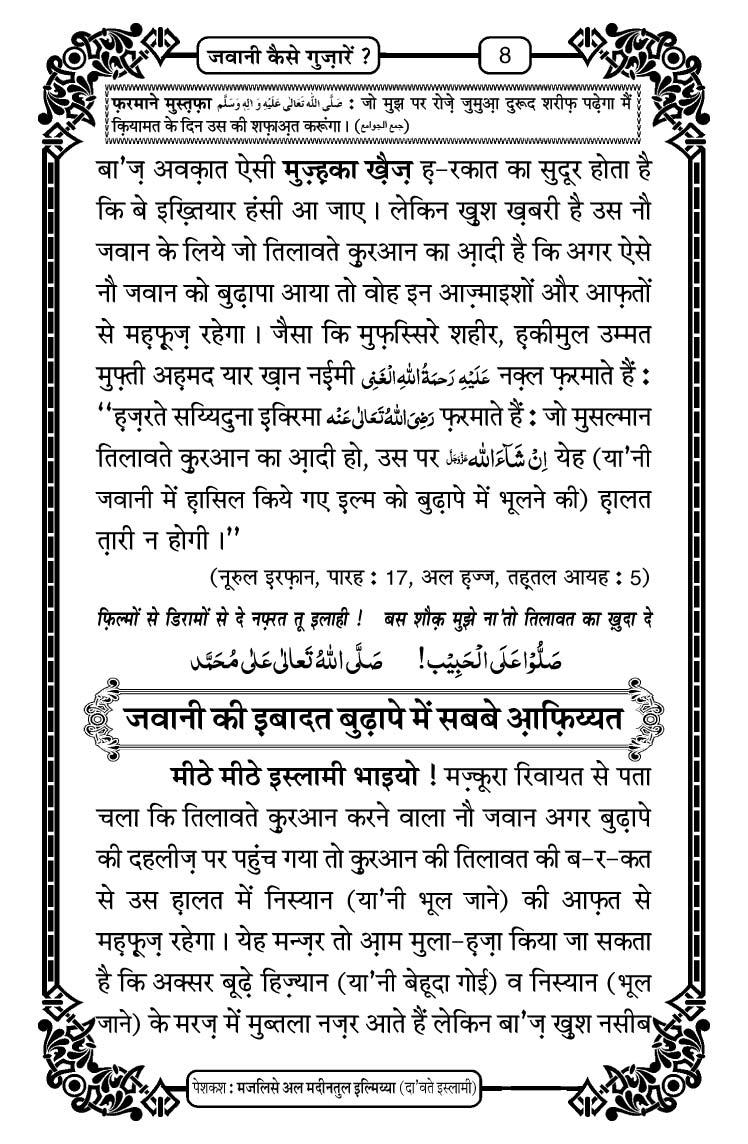 जवानी कैसे गुज़ारें ?
8
फ़रमाने मुस्तफ़ा صَلَّى اللّٰه تَعَالٰى عَلَيْهِ وَاٰلِهٖ وَسَلَّم : जो मुझ पर रोज़े जुमुआ़ दुरूद शरीफ़ पढ़ेगा मैं
क़ियामत के दिन उस की शफ़ाअ़त करूंगा। (جمع الجوامع)
बा'ज़ अवक़ात ऐसी मुज़्ह़का ख़ैज़ ह़-रकात का सुदूर होता है
कि बे इख़्तियार हंसी आ जाए । लेकिन खुश ख़बरी है उस नौ
जवान के लिये जो तिलावते क़ुरआन का आ़दी है कि अगर ऐसे
नौ जवान को बुढ़ापा आया तो वोह इन आज़्माइशों और आफ़तों
से मह़फ़ूज़ रहेगा । जैसा कि मुफ़स्सिरे शहीर, ह़कीमुल उम्मत
मुफ़्ती अह़मद यार ख़ान नईमी عَلَيْهِ رَحمَةُ اللّٰهِ الْغَنِى नक़्ल फ़रमाते हैं :
‘‘ह़ज़रते सय्यिदुना इक्रिमा رَضِىَ اللّٰهُ تَعَالٰى عَنْه फ़रमाते हैं : जो मुसल्मान
तिलावते क़ुरआन का आ़दी हो, उस पर اِنْ شَآءَ اللّٰه عَزَّوَجَلَّ येह (या'नी
जवानी में ह़ासिल किये गए इल्म को बुढ़ापे में भूलने की) ह़ालत
त़ारी न होगी ।’’
(नूरुल इरफ़ान, पारह : 17, अल ह़ज्ज, तह़्तल आयह : 5)
फ़िल्मों से डिरामों से दे नफ़्रत तू इलाही ! बस शौक़ मुझे ना'तो तिलावत का ख़ुदा दे
صَلُّوْا عَلَى الْحَبِيْب! صَلَّى اللّٰهُ تَعَالٰى عَلٰى مُحَمَّد
जवानी की इबादत बुढ़ापे में सबबे आ़फ़िय्यत
मीठे मीठे इस्लामी भाइयो ! मज़्कूरा रिवायत से पता
चला कि तिलावते क़ुरआन करने वाला नौ जवान अगर बुढ़ापे
की दहलीज़ पर पहुंच गया तो क़ुरआन की तिलावत की ब-र-कत
से उस ह़ालत में निस्यान (या'नी भूल जाने) की आफ़त से
मह़फ़ूज़ रहेगा । येह मन्ज़र तो आ़म मुला-ह़ज़ा किया जा सकता
है कि अक्सर बूढ़े हिज़्यान (या'नी बेहूदा गोई) व निस्यान (भूल
जाने) के मरज़ में मुब्तला नज़र आते हैं लेकिन बा'ज़ ख़ुश नसीब
पेशकश : मजलिसे अल मदीनतुल इल्मिय्या (दा'वते इस्लामी)